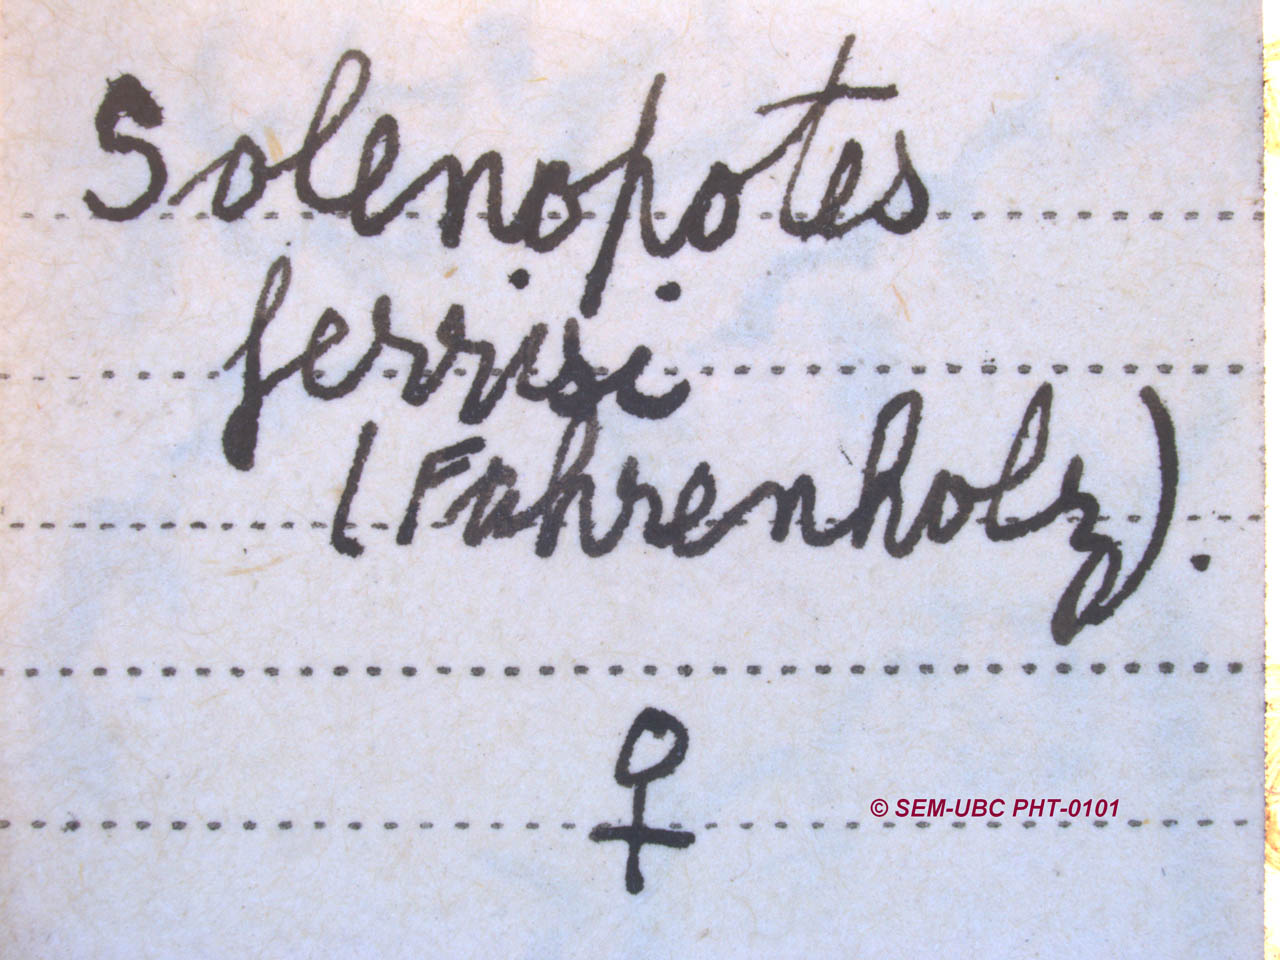 Solenopotes
ferrisi
(Fahrenholz).
♀
© SEM-UBC PHT-0101